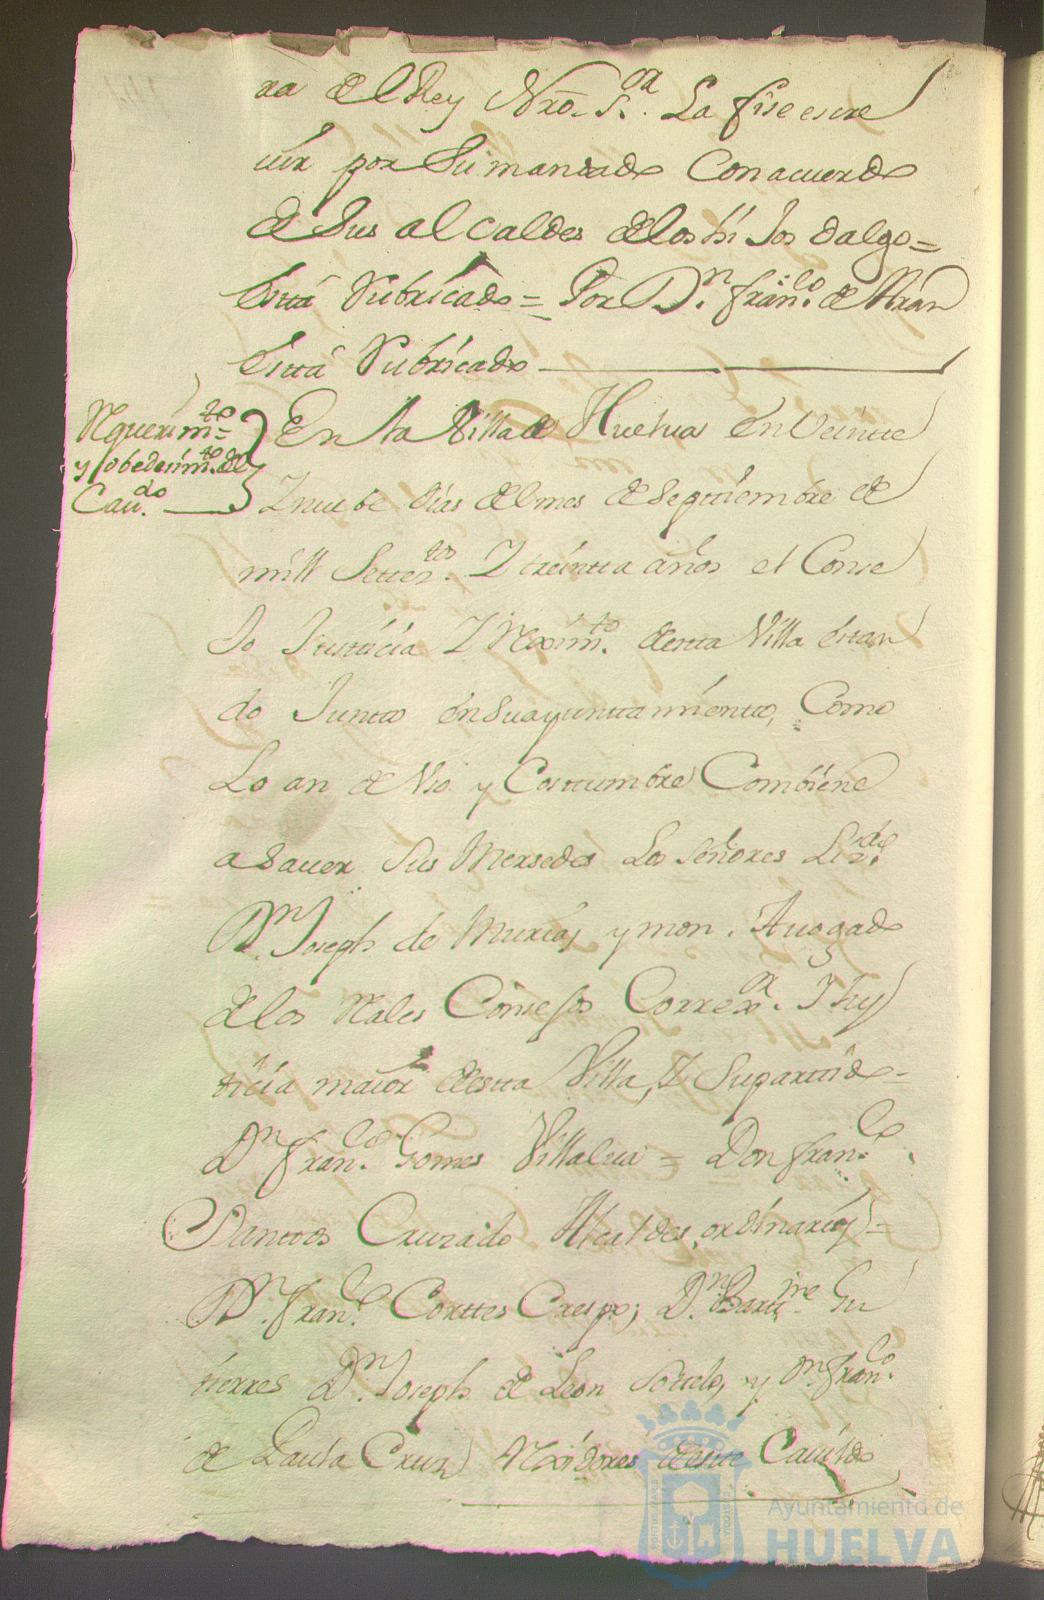 ra de el Rey Nro. Sor. La fise escre
uir por Su mandado Con acuerdo
de Sus alcaldes de los hi Jos dalgo =
Está Rubricado = Por Dn. Franco. de Arán
Está Rubricado
Requerimto =
y obedesimto. del
Caudo.
En la Villa de Huelua En Veintte
Y nuebe dias del mes de Septtiembre de
mill Settesos. Y treintta años el Conse
Jo Justticia Y Reximto. de esta Villa estan
do Juntto en Su ayunttamientto, Como
Lo an de Vso y Costtumbre Combiene
a Sauer Sus Mersedes Los Señores Lizdo.
Dn. Joseph de Murias y mon. Auogado
de los Rales Consejos Correxor. Y Jus
ticia maior de estta Villa, Y Su parttido =
Dn. Franco. Gomes Villalua = Don Franco.
Santtos Cruzado Alcaldes ordinarios =
Dn. Franco. Corttes Crespo; Dn. Barttme. Gu
tierres Dn. Joseph de Leon Sotelo, y Dn. Franco.
de Paula Cruz Rexidores deste Cauildo
Ayuntamiento de
HUELVA